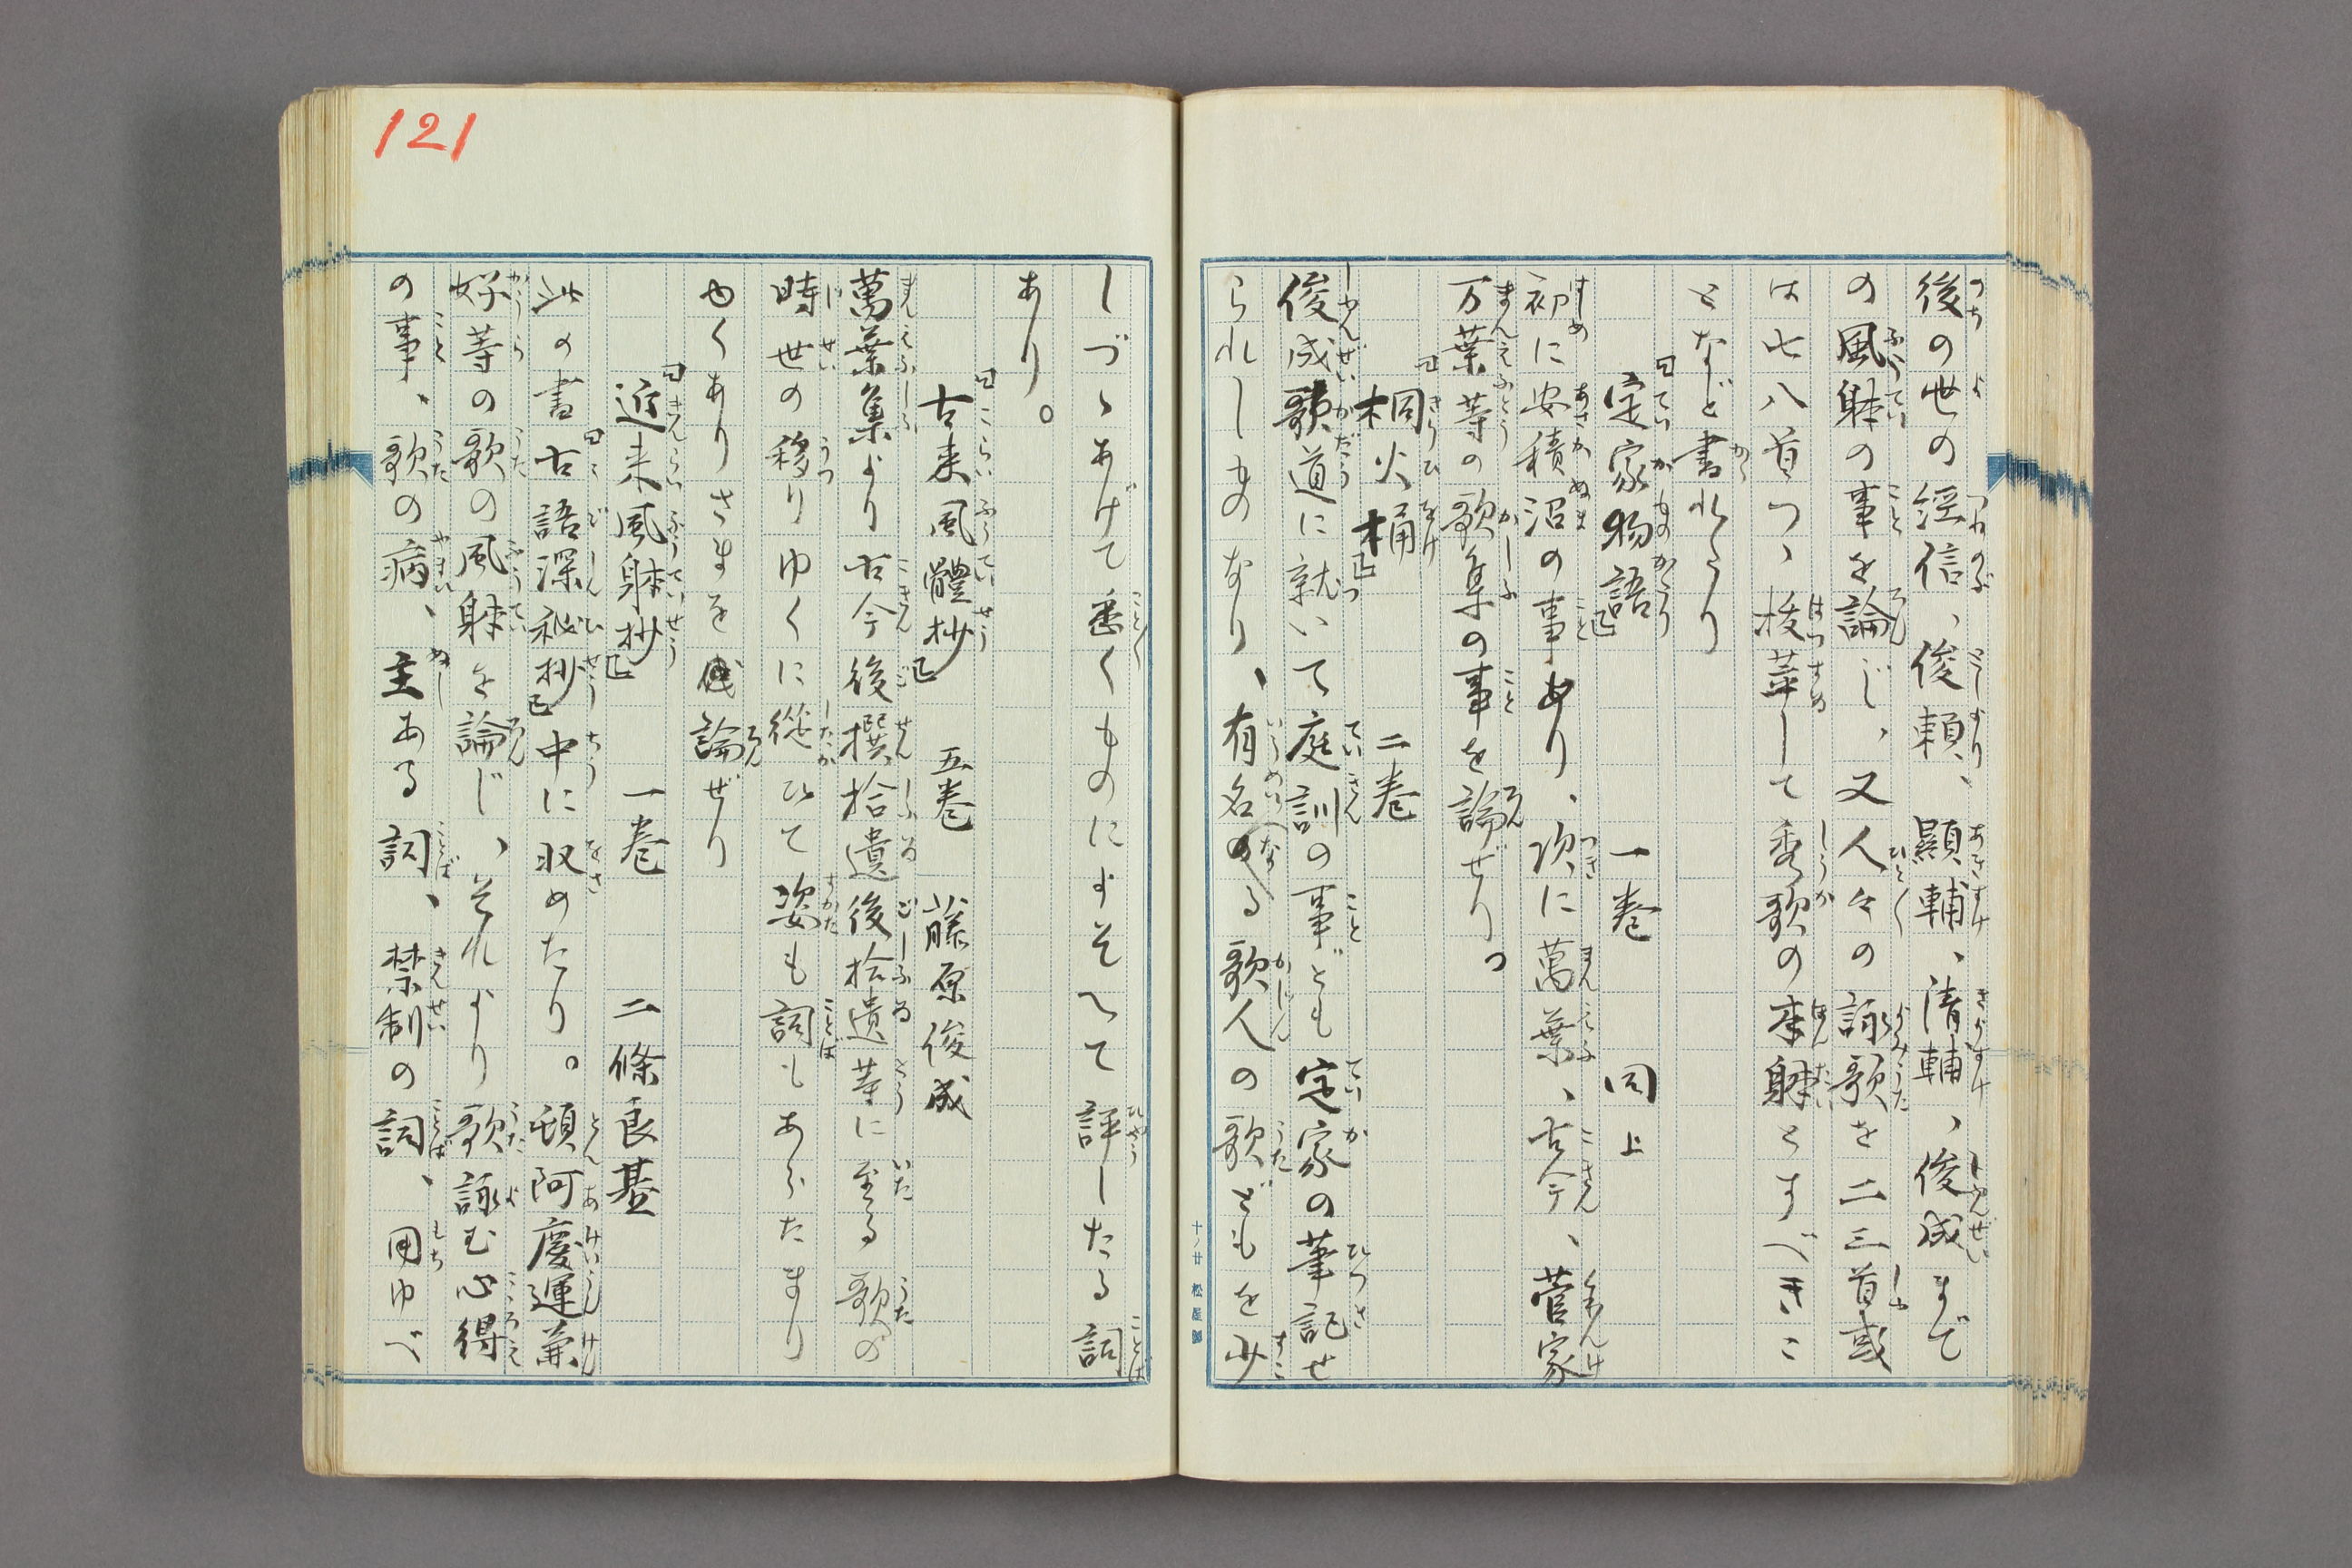 後の世の経信、俊頼、顯輔、清輔、俊成まで
の風躰の事を論じ、又人々の詠歌を二三首或
は七八首つゝ抜萃して秀歌の本躰とすべきこ
となど書れたり
定家物語 一巻 同上
初に安積沼の事あり、次に萬葉、古今、菅家
万葉等の歌集の事を論ぜり。
桐火桶 二巻
俊成歌道に就いて庭訓の事ども定家の筆記せ
られしものなり、有名なる歌人の歌どもを少
十ノ廿 松屋製
しづゝあげて悉くものによそへて評したる詞
あり。
古来風體抄 五巻 藤原俊成
萬葉集より古今後撰拾遺後拾遺等に至る歌の
時世の移りゆくに従ひて姿も詞もあらたまり
ゆくありさまを論ぜり
近来風躰抄 一巻 二條良基
此の書古語深秘抄中に収めたり。頓阿慶運兼
好等の歌の風躰を論じ、それより歌詠む心得
の事、歌の病、主ある詞、禁制の詞、用ゆべ
121